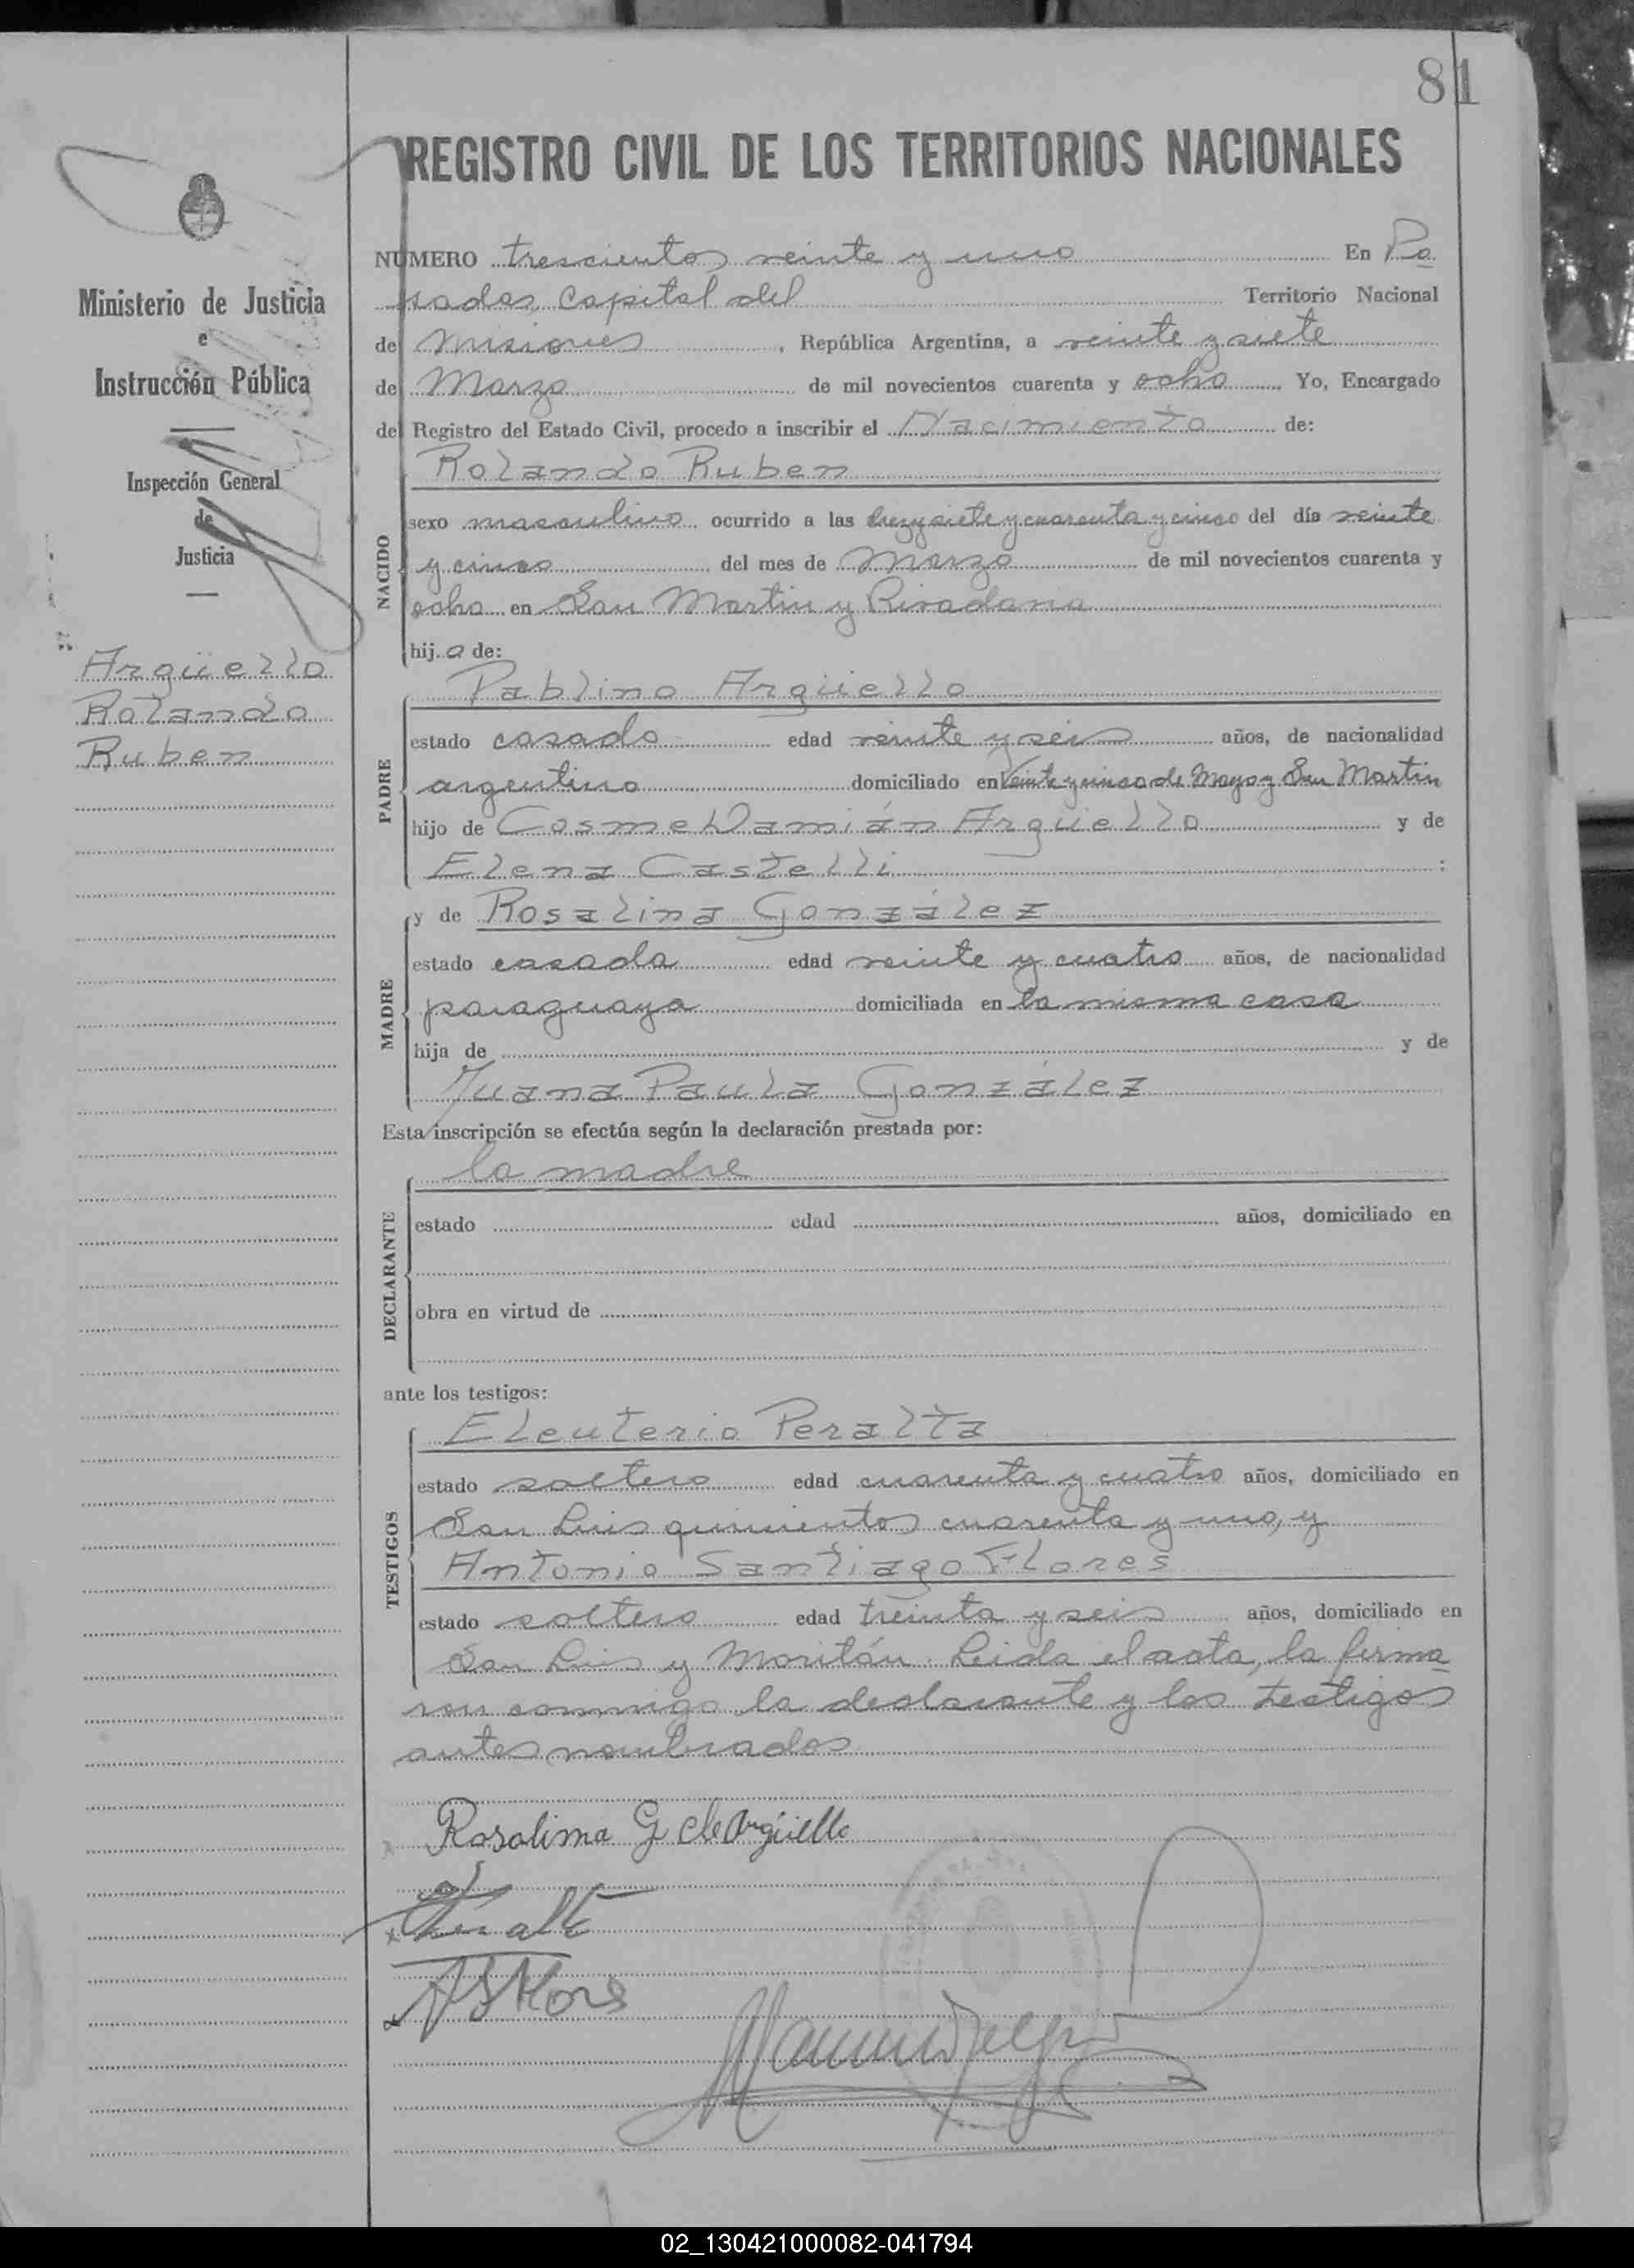 81
REGISTRO CIVIL DE LOS TERRITORIOS NACIONALES
Ministerio de Justicia
e
Instrucción Pública
Inspección General
de
Justicia
Argüello
Rolando
Ruben
NÚMERO trescientos veinte y uno En Po
sadas, capital del Territorio Nacional
de Misiones, República Argentina, a veinte y siete
de Marzo de mil novecientos cuarenta y ocho Yo, Encargado
del Registro del Estado Civil, procedo a inscribir el Nacimiento de:
Rolando Ruben
NACIDO
sexo masculino ocurrido a las diez y siete y cuarenta y cinco del día veinte
y cinco del mes de Marzo de mil novecientos cuarenta y
ocho en San Martin y Rivadavia
hij.o de:
Pablino Argüello
PADRE
estado casado edad veinte y seis años, de nacionalidad
argentino domiciliado en Veinte y cinco de Mayo y San Martin
hijo de Cosme Damián Argüello y de
Elena Castelli :
MADRE
y de Rosalina González
estado casada edad veinte y cuatro años, de nacionalidad
paraguaya domiciliada en la misma casa
hija de y de
Juana Paula González
Esta inscripción se efectúa según la declaración prestada por:
la madre
DECLARANTE
estado edad años, domiciliado en
obra en virtud de
ante los testigos:
Eleuterio Peralta
TESTIGOS
estado soltero edad cuarenta y cuatro años, domiciliado en
San Luis quinientos cuarenta y uno, y
Antonio Santiago Flores
estado soltero edad treinta y seis años, domiciliado en
San Luis y Moritán. Leida el acta, la firma
ron conmigo la declarante y los testigos
antes nombrados
Rosalima G de Argüello
02_130421000082-041794